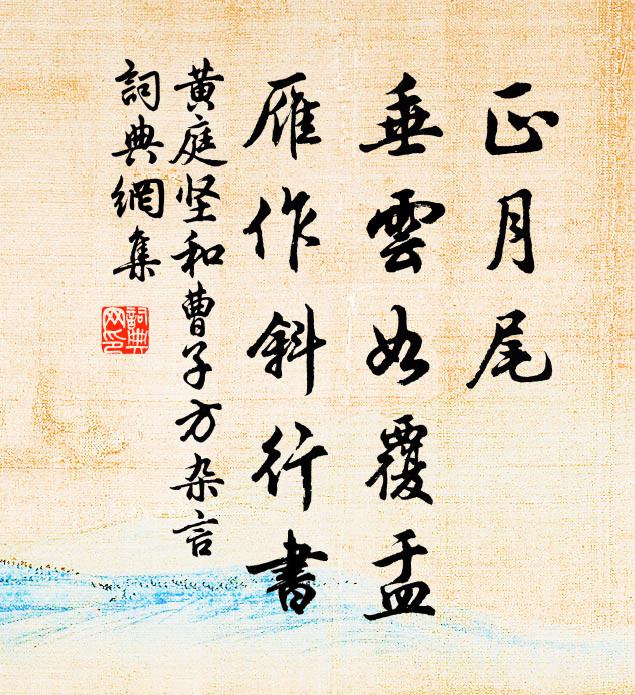 正月尾
垂雲如覆盂
雁作斜行書
黄庭坚和曹子方杂言
詞典網集
詞典网印